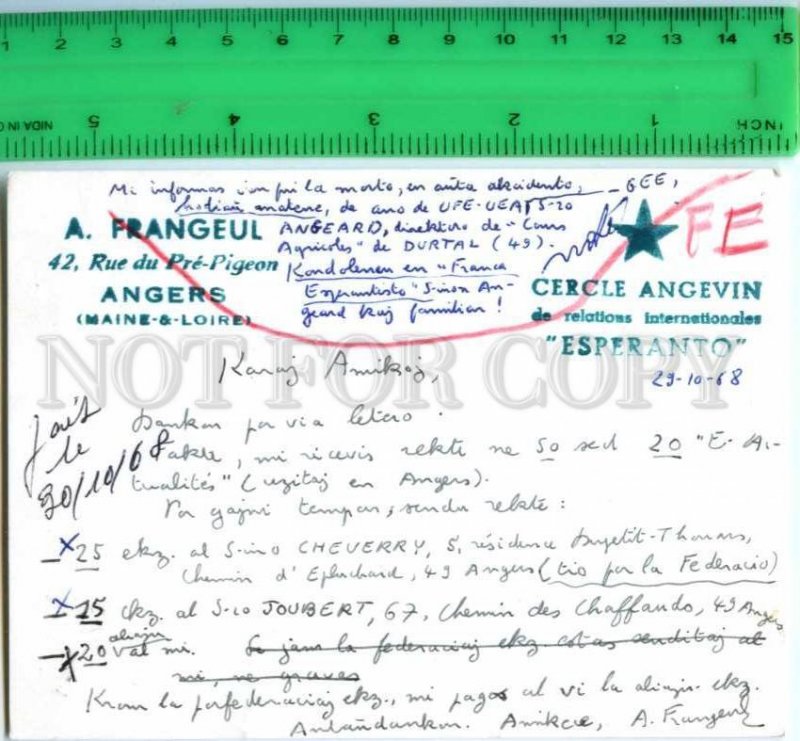 1 2 3 4 5 6 7 8 9 10 11 12 13 14 15
NIDA IN 5 4 3 2 1 INCH
Mi informas vin pri la morto, en aŭta akcidento, GEE,
hodiaŭ matene, de ano de UFE-UEA, S-ro
ANGEARD, direktoro de "Cours
Agricoles" de DURTAL (49).
Kondolencu en "Franca
Esperantisto" S-inon An-
geard kaj familian!
A. FRANGEUL
42, Rue du Pré-Pigeon
ANGERS
(MAINE-&-LOIRE)
FE
CERCLE ANGEVIN
de relations internationales
"ESPERANTO"
29-10-68
NOT FOR COPY
Karaj Amikoj,
Fait
le
30/10/68
Dankon por via letero.
Fakte, mi ricevis rekte ne 50 sed 20 "E-Ac-
tualités" (uzitaj en Angers).
Por gajni tempon, sendu rekte:
x 25 ekz. al S-ino CHEVERRY, 5, résidence Dupetit-Thouars,
Chemin d'Epluchard, 49 Angers (tio por la Federacio)
x 15 ekz. al S-ro JOUBERT, 67, Chemin des Chaffauds, 49 Angers
x 20 aliajn al mi. Se jam la federaciaj ekz. estas senditaj al
mi, ne graves
Krom la porfederaciaj ekz., mi pagos al vi la aliajn ekz.
Antaŭdankon. Amikece, A. Frangeul